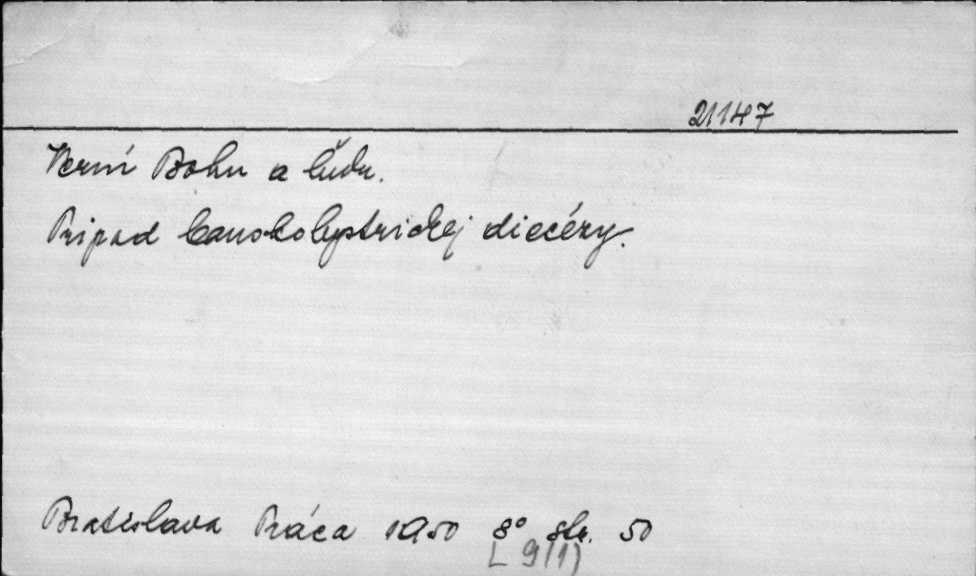 21147
Verní Bohu a ľudu.
Pripad banskobystrickej diecézy.
Bratislava Práca 1950 8° str. 50
L 9(1)